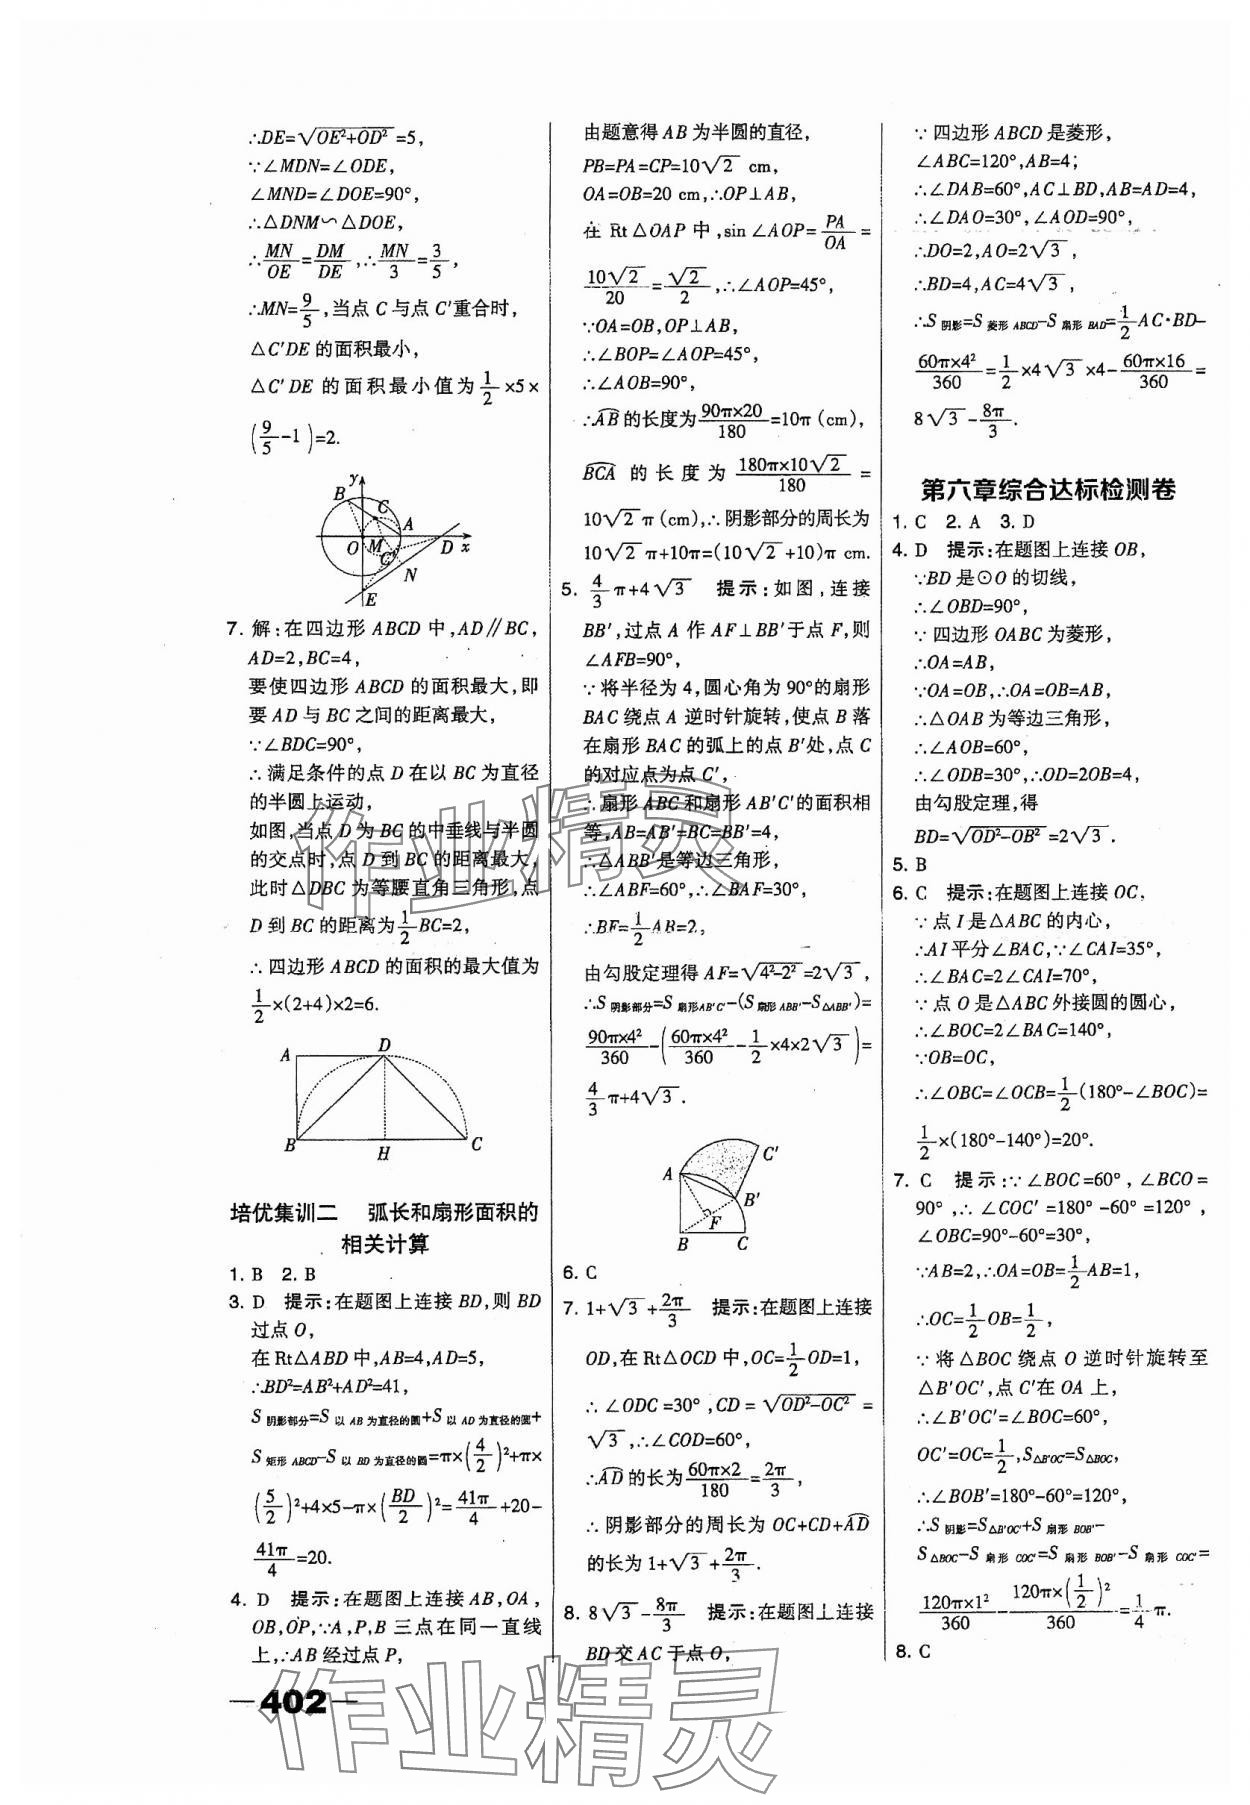 ∴DE=√(OE²+OD²)=5,
∵∠MDN=∠ODE,
∠MND=∠DOE=90°,
∴△DNM∽△DOE,
∴MN/OE=DM/DE,∴MN/3=3/5,
∴MN=9/5,当点C与点C′重合时,
△C′DE的面积最小,
△C′DE的面积最小值为1/2×5×
(9/5-1)=2.
y
B
C
A
O
M
D
x
C′
N
E
7. 解:在四边形ABCD中,AD∥BC,
AD=2,BC=4,
要使四边形ABCD的面积最大,即
要AD与BC之间的距离最大,
∵∠BDC=90°,
∴满足条件的点D在以BC为直径
的半圆上运动,
如图,当点D为BC的中垂线与半圆
的交点时,点D到BC的距离最大,
此时△DBC为等腰直角三角形,点
D到BC的距离为1/2BC=2,
∴四边形ABCD的面积的最大值为
1/2×(2+4)×2=6.
A
D
B
H
C
培优集训二 弧长和扇形面积的
相关计算
1. B 2. B
3. D 提示:在题图上连接BD,则BD
过点O,
在Rt△ABD中,AB=4,AD=5,
∴BD²=AB²+AD²=41,
S阴影部分=S以AB为直径的圆+S以AD为直径的圆+
S矩形ABCD-S以BD为直径的圆=π×(4/2)²+π×
(5/2)²+4×5-π×(BD/2)²=41π/4+20-
41π/4=20.
4. D 提示:在题图上连接AB,OA,
OB,OP,∵A,P,B三点在同一直线
上,∴AB经过点P,
402
由题意得AB为半圆的直径,
PB=PA=CP=10√2 cm,
OA=OB=20 cm,∴OP⊥AB,
在Rt△OAP中,sin∠AOP=PA/OA=
10√2/20=√2/2,∴∠AOP=45°,
∵OA=OB,OP⊥AB,
∴∠BOP=∠AOP=45°,
∴∠AOB=90°,
∴AB⌒的长度为90π×20/180=10π(cm),
BCA⌒的长度为180π×10√2/180=
10√2π(cm),∴阴影部分的周长为
10√2π+10π=(10√2+10)π cm.
5. 4/3π+4√3 提示:如图,连接
BB′,过点A作AF⊥BB′于点F,则
∠AFB=90°,
∵将半径为4,圆心角为90°的扇形
BAC绕点A逆时针旋转,使点B落
在扇形BAC的弧上的点B′处,点C
的对应点为点C′,
∴扇形ABC和扇形AB′C′的面积相
等,AB=AB′=BC=BB′=4,
∴△ABB′是等边三角形,
∴∠ABF=60°,∴∠BAF=30°,
∴BF=1/2AB=2,
由勾股定理得AF=√(4²-2²)=2√3,
∴S阴影部分=S扇形AB′C′-(S扇形ABB′-S△ABB′)=
90π×4²/360-(60π×4²/360-1/2×4×2√3)=
4/3π+4√3.
A
C′
B′
F
B
C
6. C
7. 1+√3+2π/3 提示:在题图上连接
OD,在Rt△OCD中,OC=1/2OD=1,
∴∠ODC=30°,CD=√(OD²-OC²)=
√3,∴∠COD=60°,
∴AD⌒的长为60π×2/180=2π/3,
∴阴影部分的周长为OC+CD+AD⌒
的长为1+√3+2π/3.
8. 8√3-8π/3 提示:在题图上连接
BD交AC于点O,
∵四边形ABCD是菱形,
∠ABC=120°,AB=4;
∴∠DAB=60°,AC⊥BD,AB=AD=4,
∴∠DAO=30°,∠AOD=90°,
∴DO=2,AO=2√3,
∴BD=4,AC=4√3,
∴S阴影=S菱形ABCD-S扇形BAD=1/2AC·BD-
60π×4²/360=1/2×4√3×4-60π×16/360=
8√3-8π/3.
第六章综合达标检测卷
1. C 2. A 3. D
4. D 提示:在题图上连接OB,
∵BD是⊙O的切线,
∴∠OBD=90°,
∵四边形OABC为菱形,
∴OA=AB,
∵OA=OB,∴OA=OB=AB,
∴△OAB为等边三角形,
∴∠AOB=60°,
∴∠ODB=30°,∴OD=2OB=4,
由勾股定理,得
BD=√(OD²-OB²)=2√3.
5. B
6. C 提示:在题图上连接OC,
∵点I是△ABC的内心,
∴AI平分∠BAC,∵∠CAI=35°,
∴∠BAC=2∠CAI=70°,
∵点O是△ABC外接圆的圆心,
∴∠BOC=2∠BAC=140°,
∵OB=OC,
∴∠OBC=∠OCB=1/2(180°-∠BOC)=
1/2×(180°-140°)=20°.
7. C 提示:∵∠BOC=60°,∠BCO=
90°,∴∠COC′=180°-60°=120°,
∠OBC=90°-60°=30°,
∵AB=2,∴OA=OB=1/2AB=1,
∴OC=1/2OB=1/2,
∵将△BOC绕点O逆时针旋转至
△B′OC′,点C′在OA上,
∴∠B′OC′=∠BOC=60°,
OC′=OC=1/2,S△B′OC′=S△BOC,
∴∠BOB′=180°-60°=120°,
∴S阴影=S△B′OC′+S扇形BOB′-
S△BOC-S扇形COC′=S扇形BOB′-S扇形COC′=
120π×1²/360-120π×(1/2)²/360=1/4π.
8. C
作业精灵
作业精灵